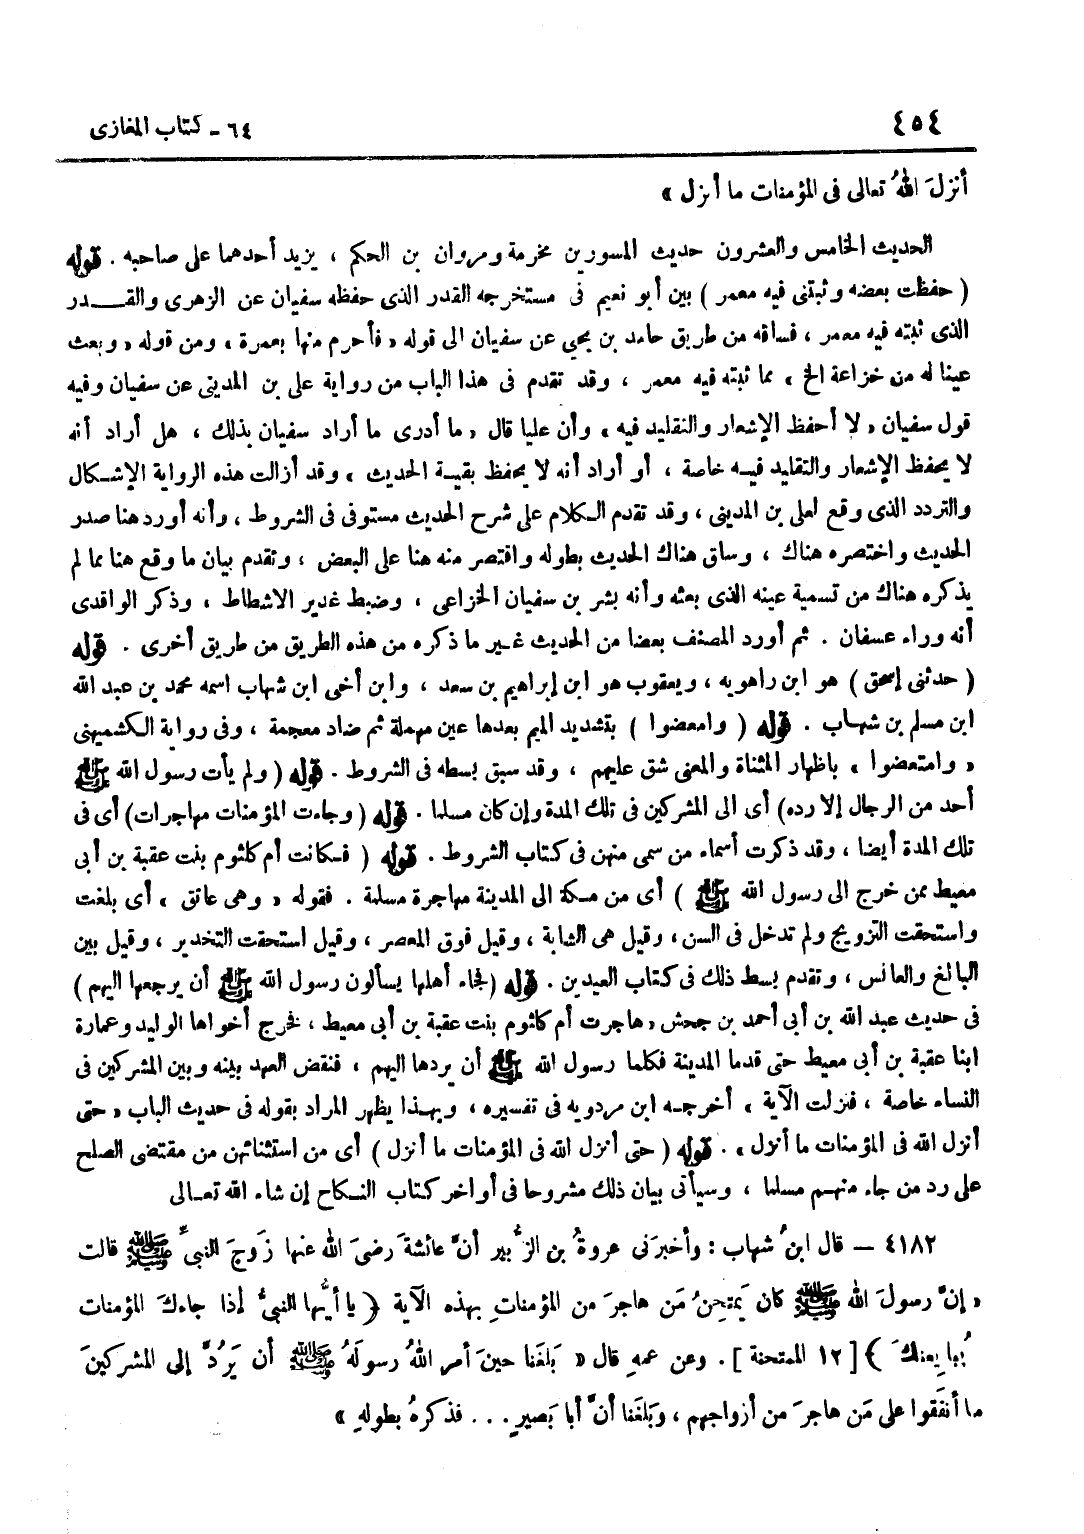 ٤٥٤
٦٤ - كتاب المغازى
أنزلَ اللهُ تعالى فى المؤمنات ما أنزل »
الحديث الخامس والعشرون حديث المسور بن مخرمة ومروان بن الحكم ، يزيد أحدهما على صاحبه . قوله
( حفظت بعضه وثبتنى فيه معمر ) بين أبو نعيم فى مستخرجه القدر الذى حفظه سفيان عن الزهرى والقـــدر
الذى ثبته فيه معمر ، فساقه من طريق حامد بن يحيى عن سفيان الى قوله « فأحرم منها بعمرة ، ومن قوله « وبعث
عينا له من خزاعة الخ » مما ثبته فيه معمر ، وقد تقدم فى هذا الباب من رواية على بن المدينى عن سفيان وفيه
قول سفيان « لا أحفظ الإشعار والتقليد فيه » وأن عليا قال « ما أدرى ما أراد سفيان بذلك ، هل أراد أنه
لا يحفظ الإشعار والتقليد فيـه خاصة ، أو أراد أنه لا يحفظ بقيـة الحديث » وقد أزالت هذه الرواية الإشـكال
والتردد الذى وقع لعلى بن المدينى ، وقد تقدم الـكلام على شرح الحديث مستوفى فى الشروط ، وأنه أورد هنا صدر
الحديث واختصره هناك ، وساق هناك الحديث بطوله واقتصر منه هنا على البعض ، وتقدم بيان ما وقع هنا مما لم
يذكره هناك من تسمية عينه الذى بعثه وأنه بشر بن سفيان الخزاعى ، وضبط غدير الاشطاط ، وذكر الواقدى
أنه وراء عسفان . ثم أورد المصنف بعضا من الحديث غـير ما ذكره من هذه الطريق من طريق أخرى . قوله
( حدثنى إسحق ) هو ابن راهويه ، ويعقوب هو ابن إبراهيم بن سعد ، وابن أخى ابن شهاب اسمه محمد بن عبد الله
ابن مسلم بن شهـاب . قوله ( وامعضوا ) بتشديد الميم بعدها عين مهملة ثم ضاد معجمة ، وفى رواية الـكشميهنى
« وامتعضوا » باظهار المثناة والمعنى شق عليهم ، وقد سبق بسطه فى الشروط . قوله ( ولم يأت رسول الله ﷺ
أحد من الرجال إلا رده ) أى الى المشركين فى تلك المدة وإن كان مسلما . قوله ( وجاءت المؤمنات مهاجرات ) أى فى
تلك المدة أيضا ، وقد ذكرت أسماء من سمى منهن فى كتاب الشروط . قوله ( فـكانت أم كلثوم بنت عقبة بن أبى
معيط ممن خرج الى رسول الله ﷺ ) أى من مـكة الى المدينة مهاجرة مسلمة . فقوله « وهى عاتق » أى بلغت
واستحقت التزويج ولم تدخل فى السن ، وقيل هى الشابة ، وقيل فوق المعصر ، وقيل استحقت التخدير ، وقيل بين
البالغ والعانس ، وتقدم بسط ذلك فى كتاب العيدين . قوله ( لجاء أهلها يسألون رسول الله ﷺ أن يرجعها اليهم )
فى حديث عبد الله بن أبى أحمد بن جحش « هاجرت أم كلثوم بنت عقبة بن أبى معيط ، فخرج أخواها الوليد وعمارة
ابنا عقبة بن أبى معيط حتى قدما المدينة فكلما رسول الله ﷺ أن يردها اليهم ، فنقض العهد بينه وبين المشركين فى
النساء خاصة ، فنزلت الآية » أخرجـه ابن مردويه فى تفسيره ، وبهـذا يظهر المراد بقوله فى حديث الباب « حتى
أنزل الله فى المؤمنات ما أنزل » . قوله ( حتى أنزل الله فى المؤمنات ما أنزل ) أى من استثنائهن من مقتضى الصلح
على رد من جاء منهـم مسلما ، وسيأتى بيان ذلك مشروحا فى أواخر كتاب النـكاح إن شاء الله تعـالى
٤١٨٢ — قال ابنُ شهاب : وأخبرَنى عروةُ بن الزُّبير أنَّ عائشةَ رضىَ اللهُ عنها زَوجَ النبىِّ ﷺ قالت
« إنَّ رسولَ الله ﷺ كان يَمتحِنُ مَن هاجرَ من المؤمناتِ بهذه الآية ﴿ يا أيُّها النبىُّ إذا جاءكَ المؤمنات
يُبايِعنَكَ ﴾ [ ١٢ الممتحنة ] . وعن عمهِ قال « بَلغَنا حينَ أمر اللهُ رسولَهُ ﷺ أن يَرُدَّ إلى المشركينَ
ما أنفَقوا على مَن هاجرَ من أزواجهم ، وبَلغَنا أنَّ أبا بَصيرٍ . . . فذكرهُ بطولهِ »